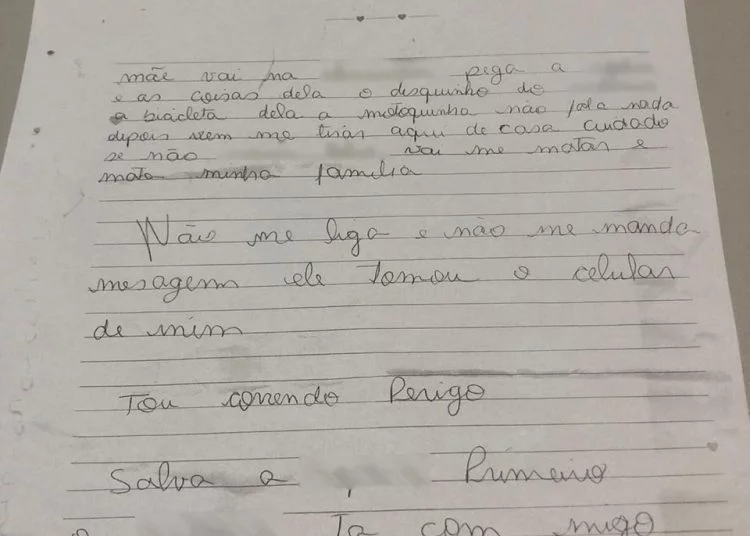 mãe vai na pega a
e as coisas dela o disquinho do
a bicicleta dela a motoquinha não fala nada
depois vem me tirar aqui de casa cuidado
se não vai me matar e
mata minha familia
Não me liga e não me manda
mesagem ele tomou o celular
de mim
Tou correndo Perigo
Salva a Primeiro
Ta com migo